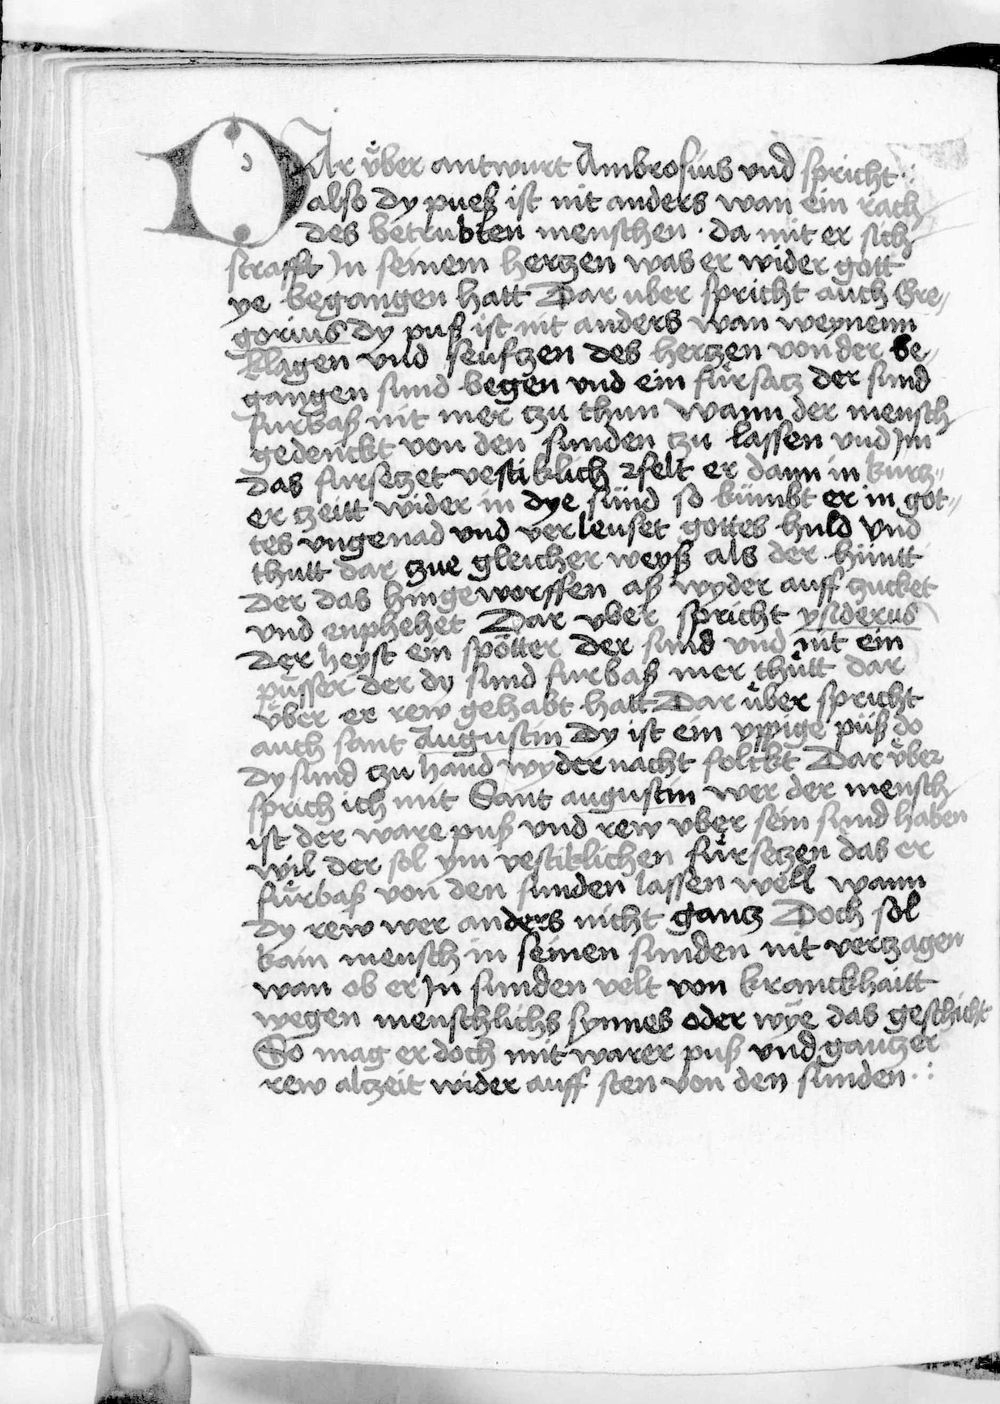 DAr ůber antwurt Ambrosius vnd spricht ·:
also dy pueß ist nit anders wan ein rach
des betrubten menschen · da mit er sich
strafft Jn seinem hertzen was er wider gott
ye begangen hatt Dar uber spricht auch Gre//
gorius dy puß ist nit anders wan weynenn
klagen vnd seufczen des hertzen von der be//
gangen sund begen vnd ein fürsatz der sund
furbaß nit mer tzu thun Wann der mensch
gedenckt von den sunden tzu lassen vnd Jm
das fursetzet vestiklich felt er dann in kurtz//
er tzeitt wider in dye sünd so kümbt er in got//
tes vngenad vnd verleuset gottes huld vnd
thutt dar tzue gleicher weyß als der hüntt
Der das hingeworffen aß wyder auff zucket
vnd enphehet Dar vber spricht ysiderus
Der heyst ein spötter der sund vnd nit ein
püsser der dy sund furbaß mer thůtt dar
über er rew gehabt hatt Dar über spricht
auch sant Augustin Dy ist ein yppige püß do
dy sund tzu hand wyder nacht folckt Dar über
sprich ich mit Sant augustin wer der mensch
ist der ware puß vnd rew vber sein sund haben
wil der sol ym vestiklichen fürsetzen das er
fürbaß von den sunden lassen well wann
dy rew wer anders nicht gantz Doch sol
kain mensch in seinen sunden nit vertzagen
wan ob er Jn sunden velt von kranckhaitt
wegen menschlichs synnes oder wÿe das geschicht
So mag er doch mit warer puß vnd gantzer
rew altzeit wider auff sten von den sunden ·: